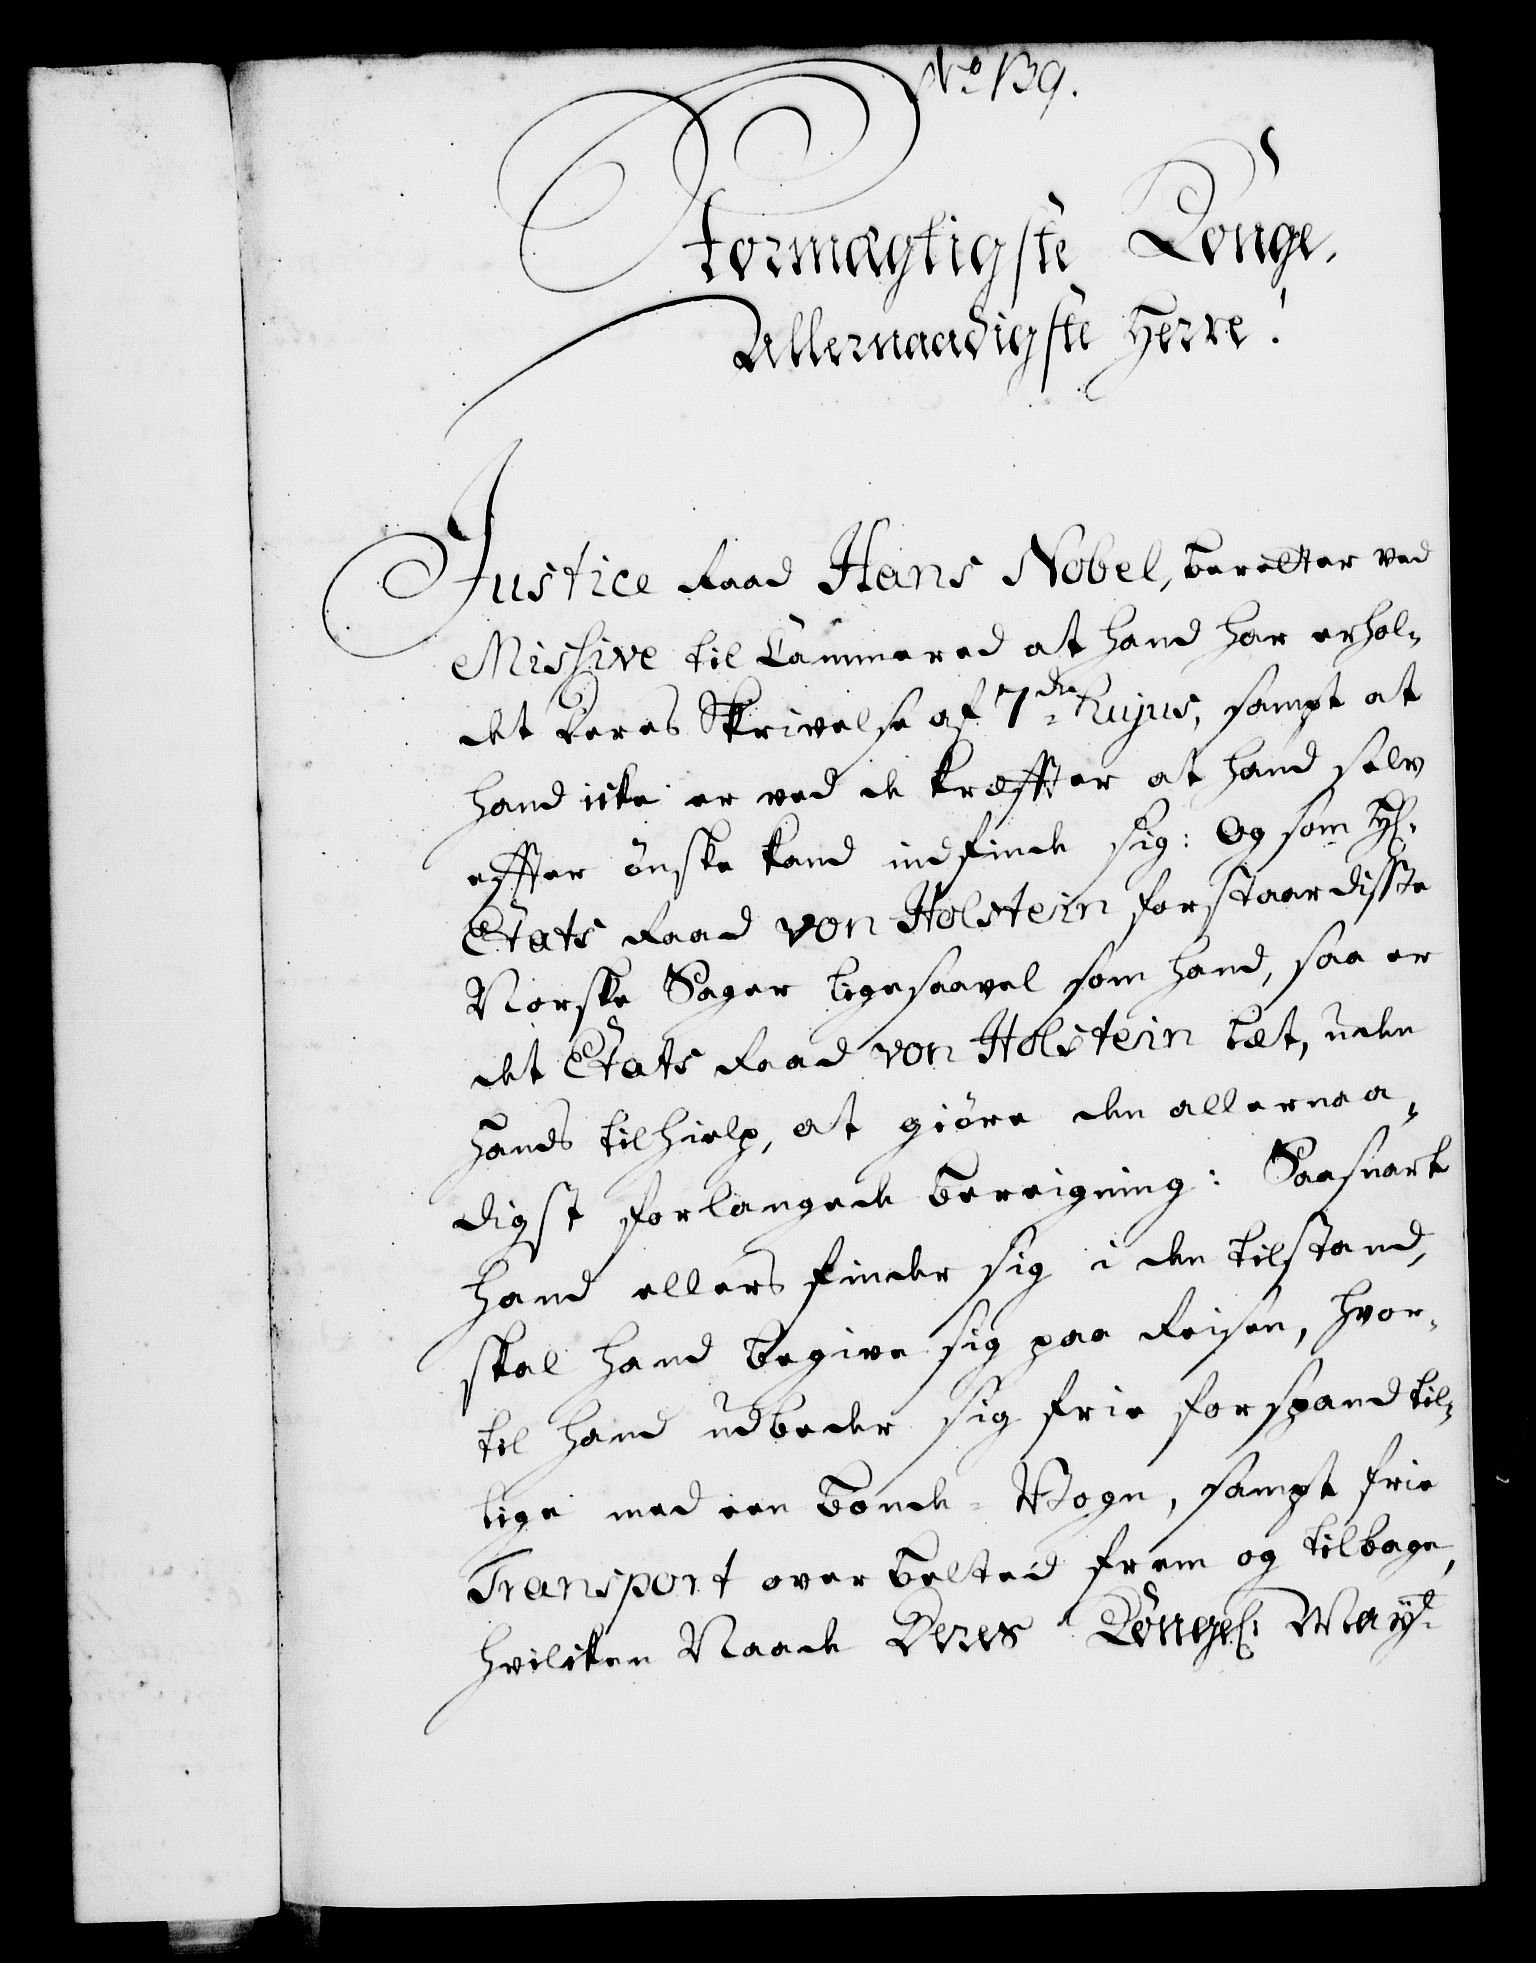 No 139.
Stormægtigste Konge,
Allernaadigste Herre!
Justice Raad Hans Nobel, beretter ved
Missive til Cammered at hand har erhol-
det deres Skrivelse af 7de hujus, sampt at
hand icke er ved de kræffter at hand selv
effter ønske kand indfinde sig: Og som H:
Etats Raad von Holstein forstaar disse
Norske Sager ligesaavel som hand, saa er
det Etats Raad von Holstein let, uden
hands tilhielp, at giøre den allernaa-
digst forlangede beregning: Saasnart
hand ellers finder sig i den tilstand,
skal hand begive sig paa Reisen, hvor-
til hand udbeder sig frie forspand til-
lige med een Bonde-Vogn, sampt frie
Transport over Belted frem og tilbage,
hvilcken Naade Deres Kongel: Mayt